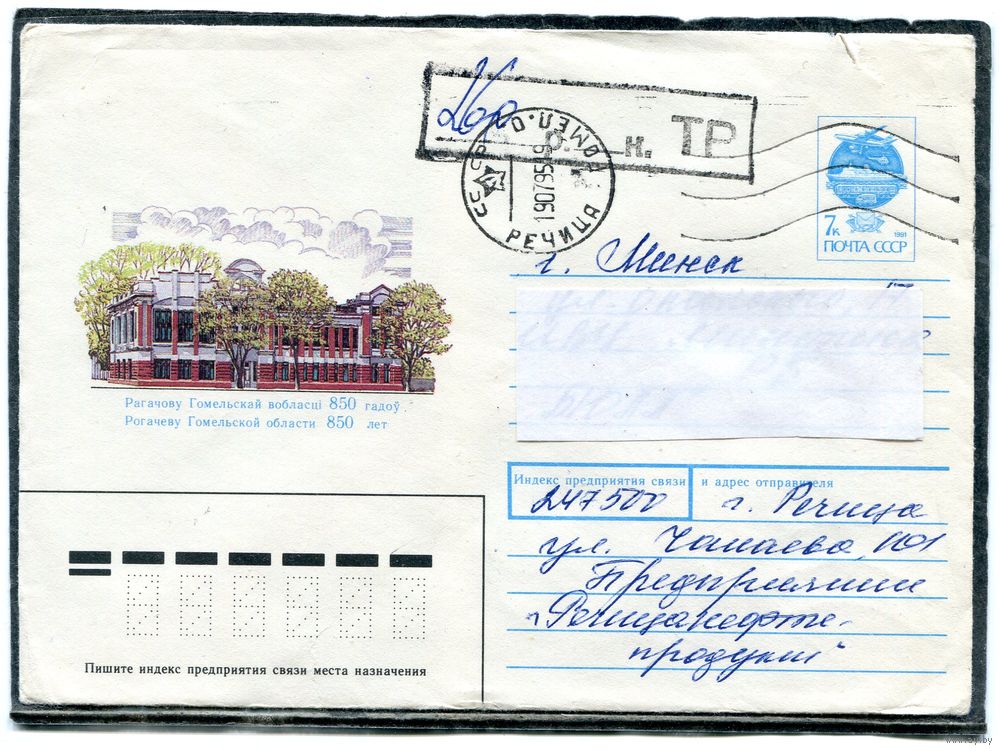 260 р. к. ТР
СССР ГОМЕЛ. О.
190795
РЕЧИЦА
7к
1991
ПОЧТА СССР
г. Минск
Рагачову Гомельскай вобласці 850 гадоў
Рогачеву Гомельской области 850 лет
Индекс предприятия связи и адрес отправителя
247500 г. Речица
ул. Чапаева, 101
Предприятии
"Речицанефте-
продукт"
Пишите индекс предприятия связи места назначения